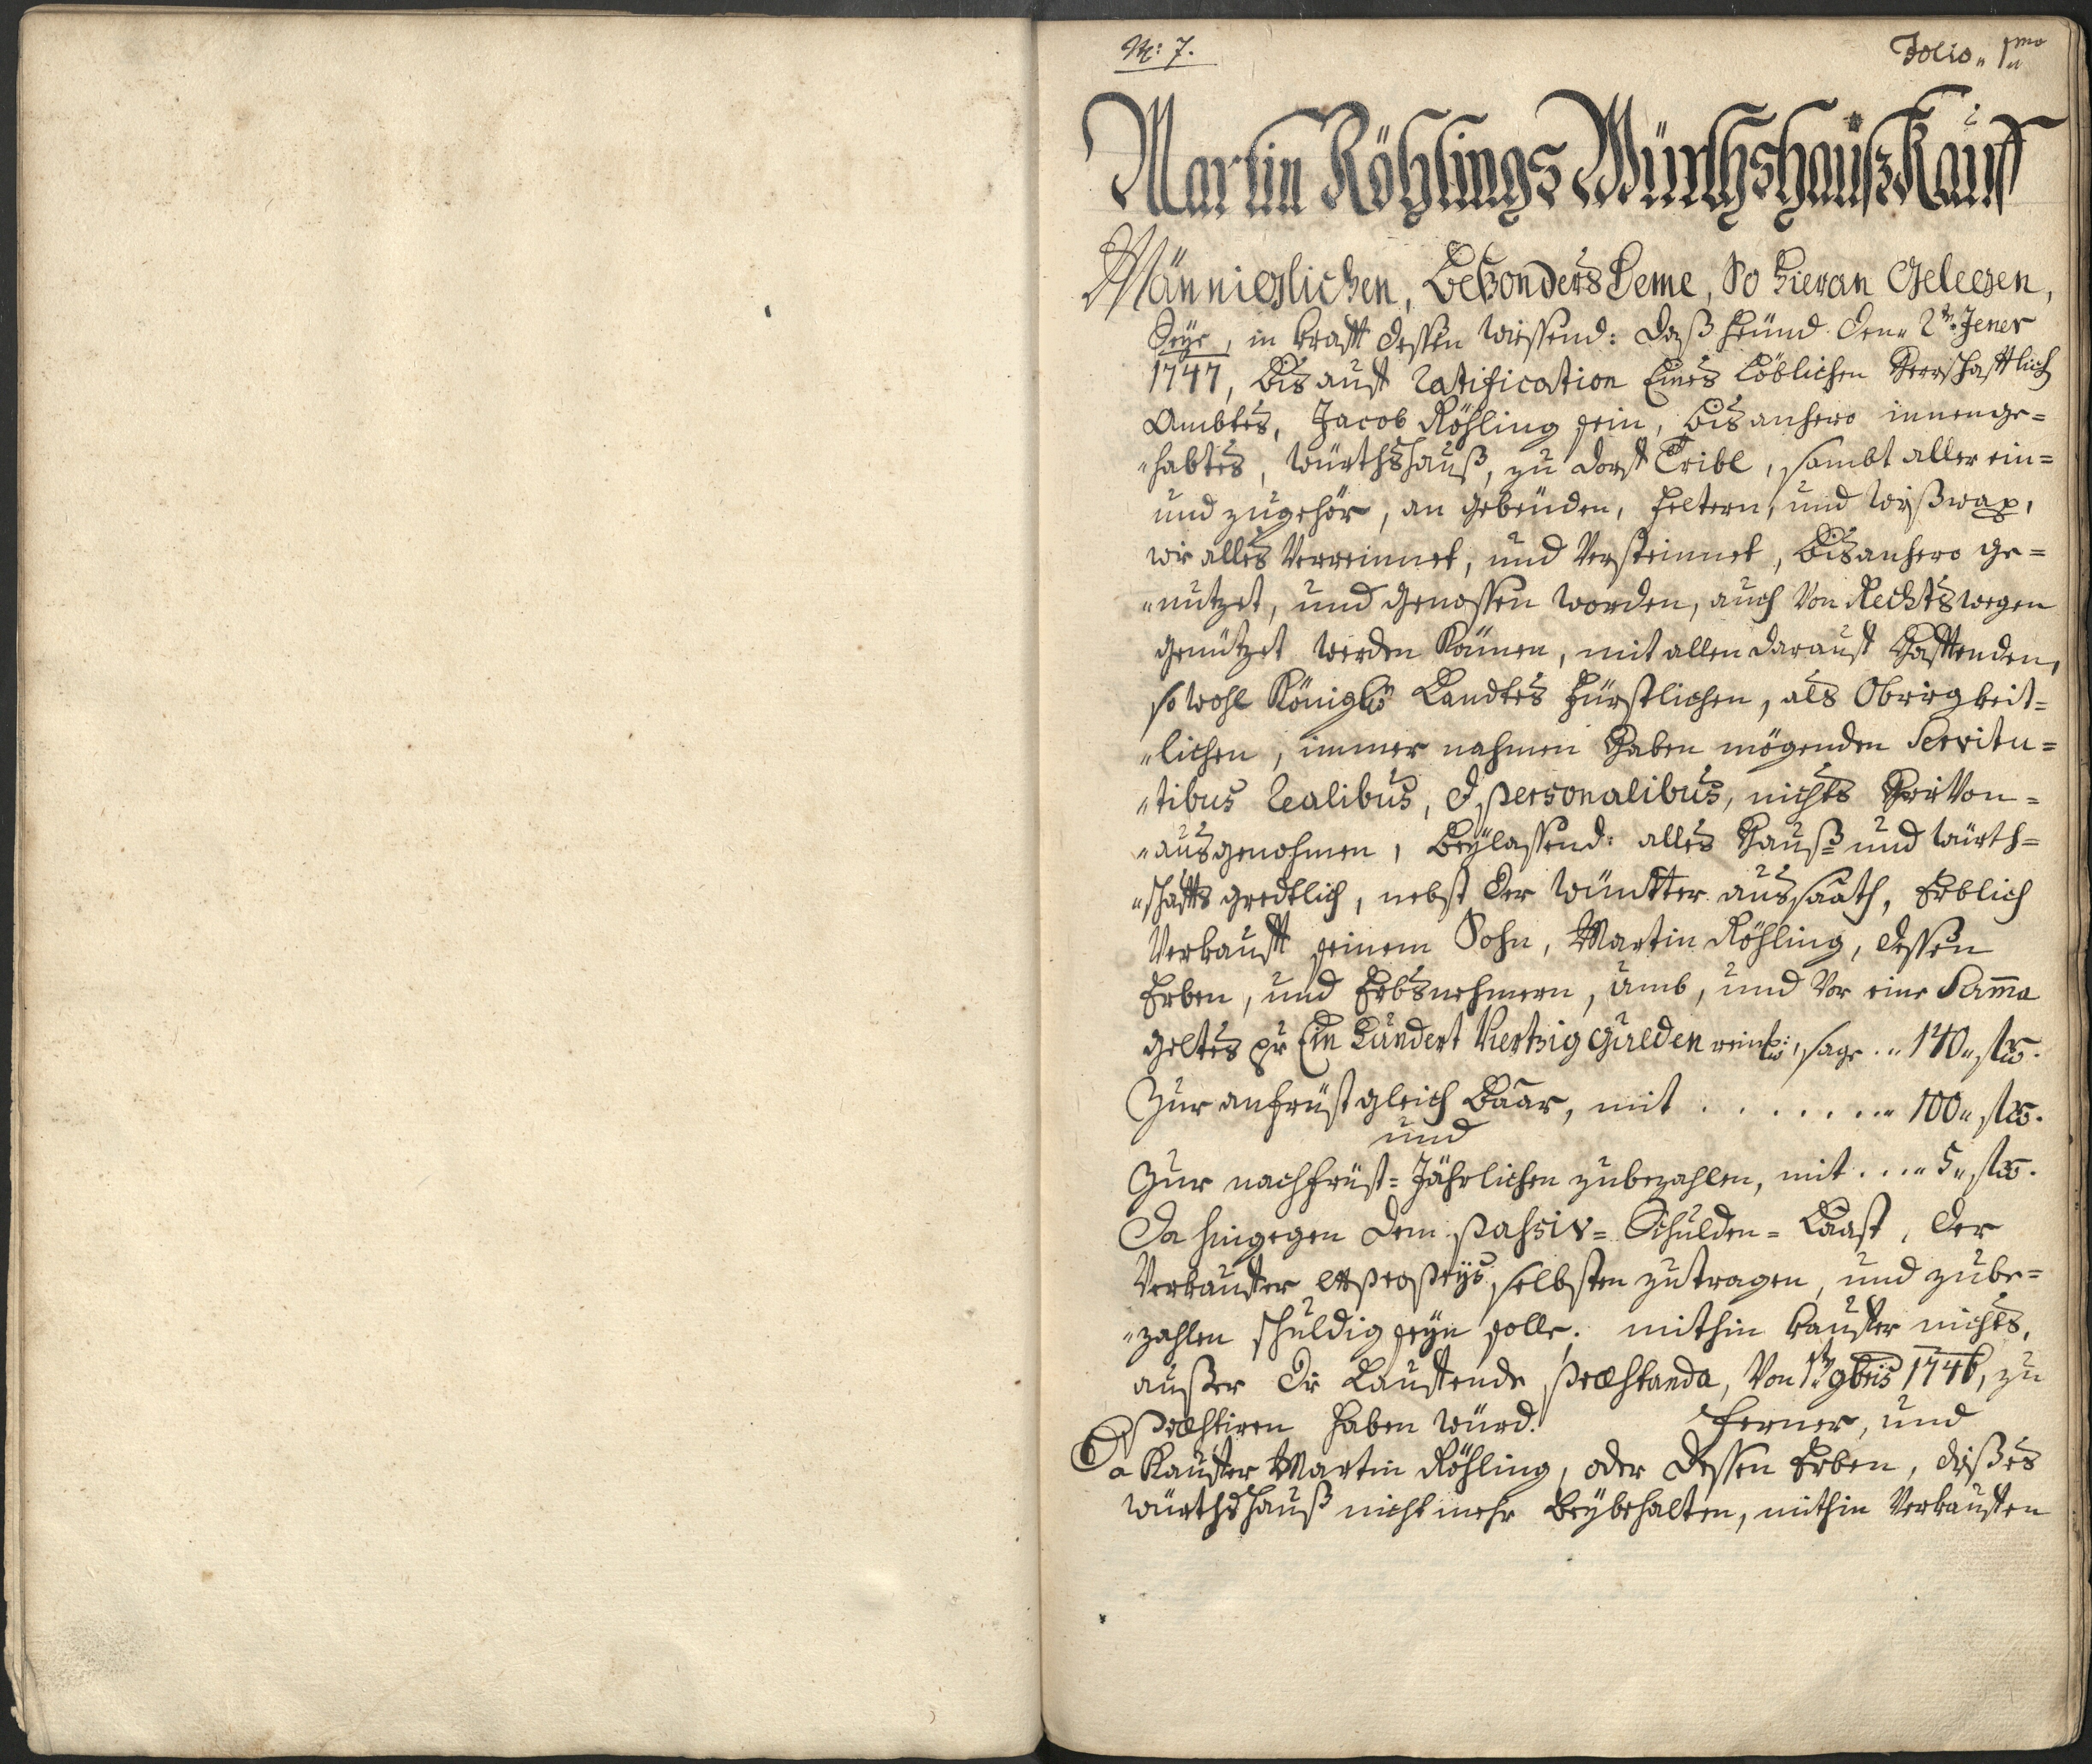 N: 7.
Folio. 1mo
Martin Röhlings Würthshauß Kauf
Männiglichen, Besonders Deme, So hieran Gelegen,
Seye, in krafft dessen wissend: daß heünd den 2tn Jener
1747, bis auf ratification Eines Löblichen Herrschafftlich
Ambtes, Jacob Röhling sein, bis anhero innenge=
"habtes, Würthshauß, zu dorf Tribl, sambt aller ein=
und zugehör, an gebeüden, feltern, und wißwax,
wie alles Verreinnet, und Versteinnet, bis anhero ge=
"nutzet, und genossen worden, auch Von Rechtswegen
genützet werden können, mit allen darauf Hafftenden,
so wohl Königl: Landtes fürstlichen, als Obrigkeit=
"lichen, immer nahmen Haben mögenden Servitu=
"tibus realibus, & personalibus, nichts hierVon=
"ausgenohmen, Beylassend: alles Hauß= und würth=
"schaffts gredtlich, nebst der wüntter aussaath, Erblich
Verkaufft seinem Sohn, Martin Röhling, dessen
Erben, und Erbsnehmern, umb, und Vor eine Summa
geltes pr Ein Hundert Viertzig Gulden reinl:, sage .. 140" fl.
Zur anfrüst gleich Baar, mit . . . . . . . .. 100" fl.
und
Zur nachfrüst= Jährlichen zubezahlen, mit . . .. 5" fl.
Da hingegen dem passiv= Schulden= Laast, der
Verkaufer selbsten zutragen, und zube=
"zahlen schuldig seyn solle; mithin kaufer nichts,
außer die Lauffende præstanda, Von 1t 9bris 1746, zu
præstiren haben würd. Ferner, und
Da Kaufer Martin Röhling, oder dessen Erben, dißes
würthshauß nicht mehr Beybehalten, mithin Verkauffen